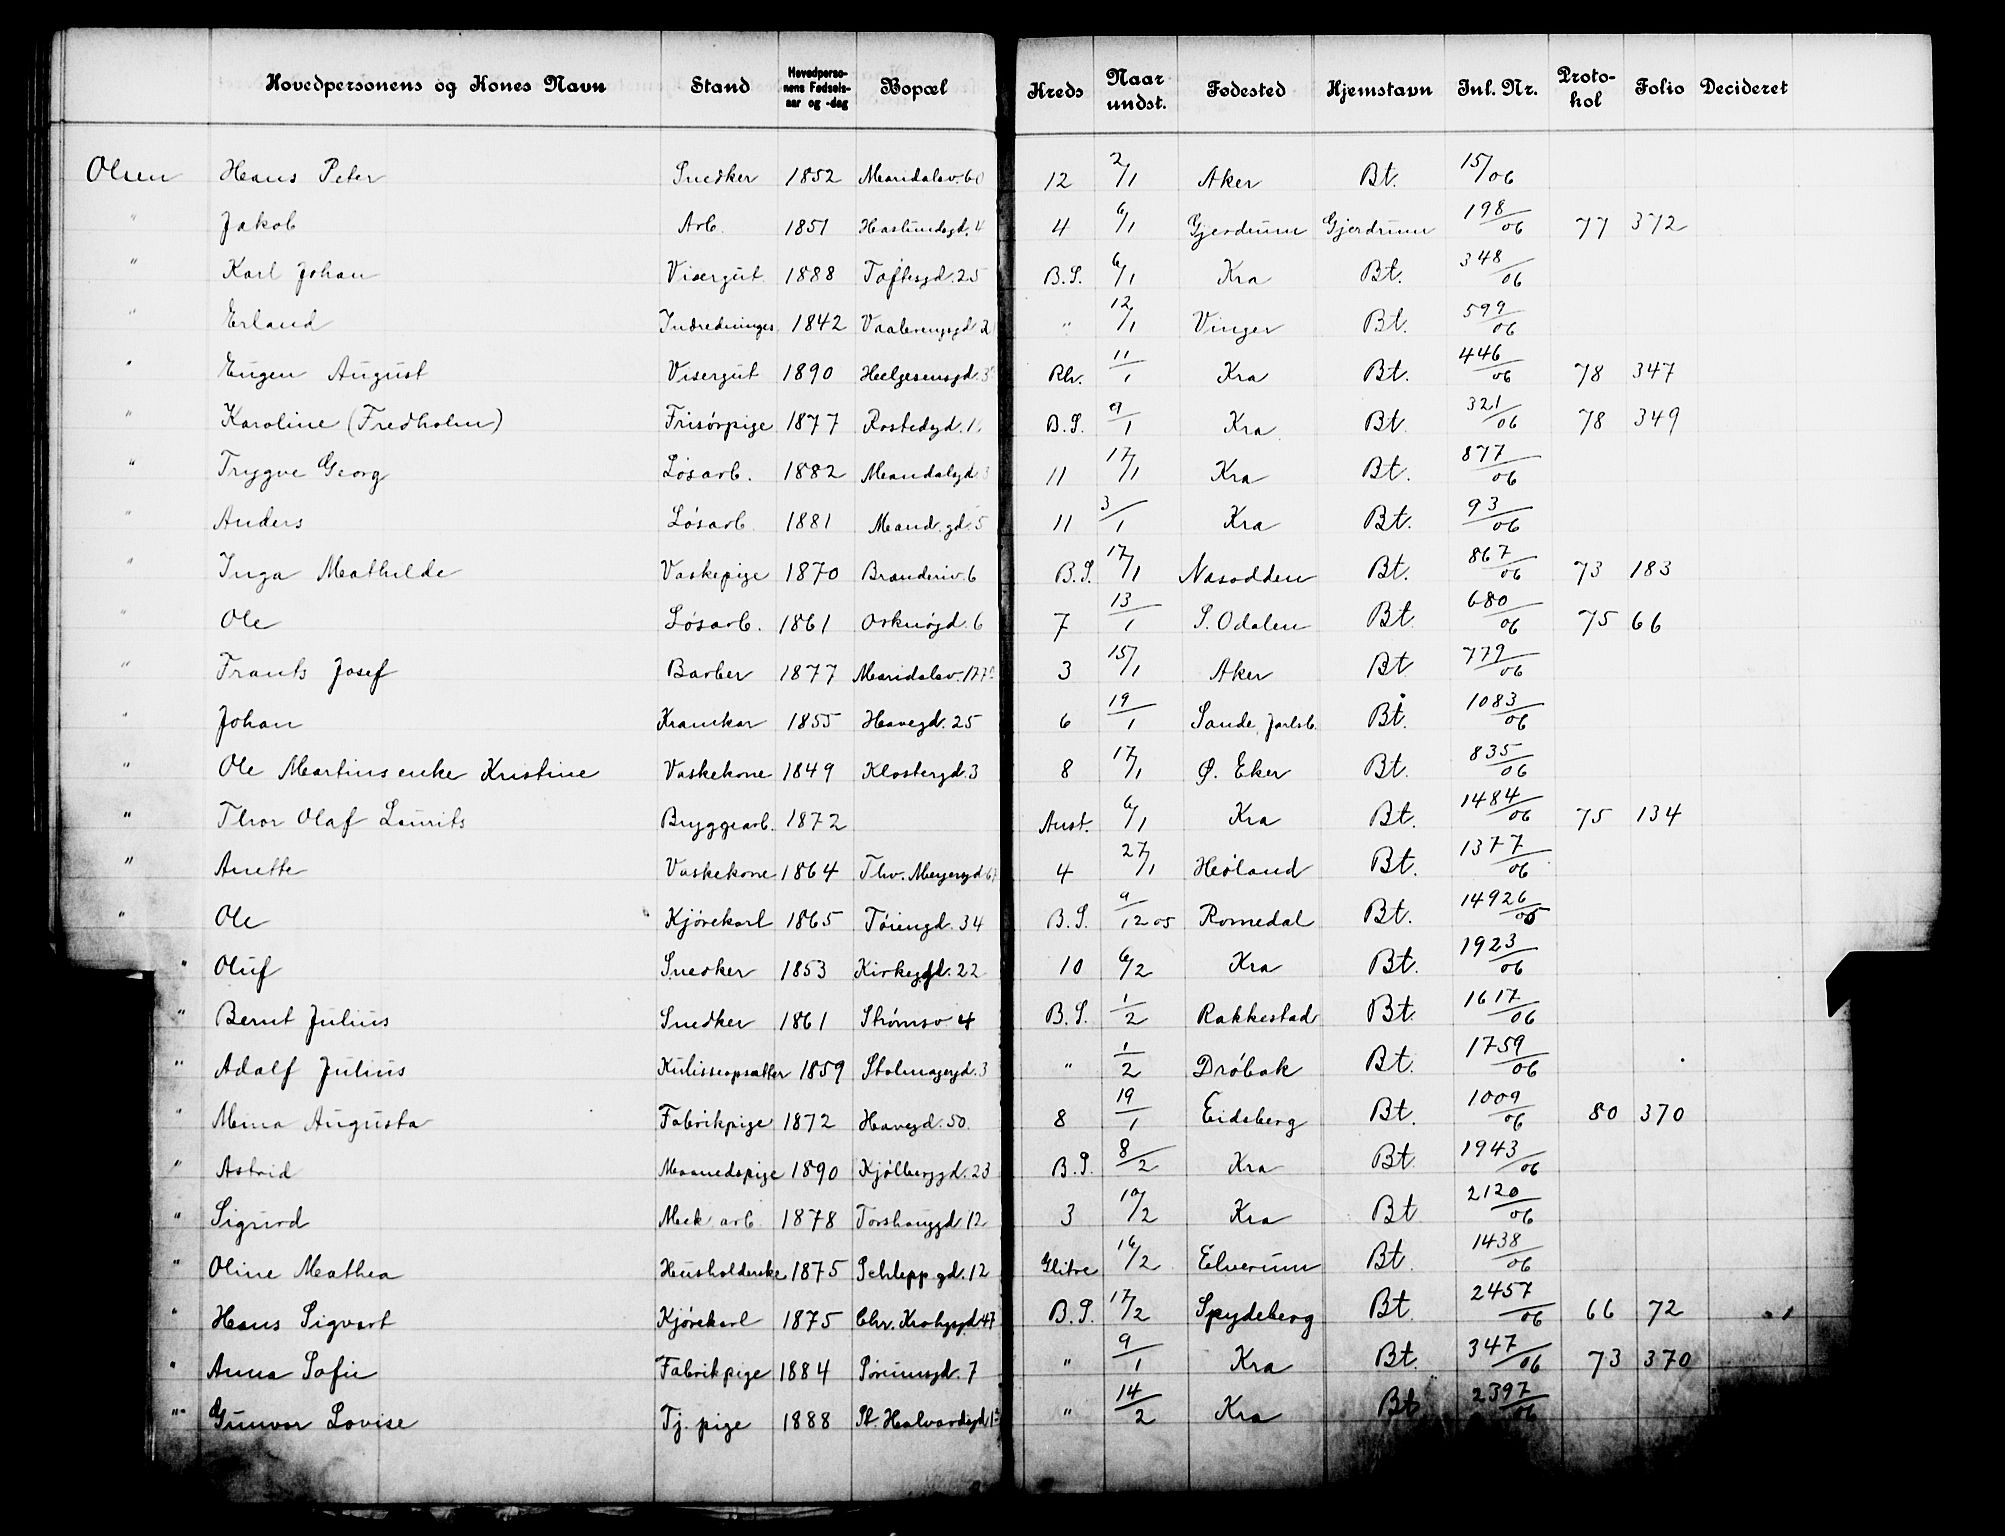 Hovedpersonens og Kones Navn Stand Hovedperso-nens Fødsels-aar og -dag Bopæl Kreds Naar undst. Fødested Hjemstavn Inl. Nr. Proto-kol Folio Decideret
Olsen Hans Peter Snedker 1852 Maridalsv. 60 12 2/1 Aker Bt. 15/06
" Jakob Arb. 1851 Haslundsgd. 4 4 6/1 Gjerdrum Gjerdrum 198/06 77 372
" Karl Johan Visergut 1888 Toftesgd. 25 B.S. 6/1 Kra Bt. 348/06
" Erland Indredninges 1842 Vaalerengsgd " 12/1 Vinger Bt. 599/06
" Eugen August Visergut 1890 Helgesensgd. Rh. 11/1 Kra Bt. 446/06 78 347
" Karoline (Fredholm) Frisørpige 1877 Rostedgd. B.S. 9/1 Kra Bt. 321/06 78 349
" Trygve Georg Løsarb. 1882 Mandalsgd 11 17/1 Kra Bt. 877/06
" Anders Løsarb. 1881 Mand. gd. 5 11 3/1 Kra Bt. 93/06
" Inga Mathilde Vaskepige 1870 Branderiv. 6 B.S. 17/1 Nasodden Bt. 867/06 73 183
" Ole Løsarb. 1861 Osknøgd. 6 7 13/1 S. Odalen Bt. 680/06 75 66
" Frants Josef Barber 1877 Maridalsv. 3 15/1 Aker Bt 779/06
" Johan Kramkar 1855 Havegd. 25 6 19/1 Sande, Jarlsb. Bt. 1083/06
" Ole Martins enke Kristine Vaskekone 1849 Klostergd. 3 8 17/1 Ø. Eker Bt. 835/06
" Thor Olaf Laurits Bryggearb. 1872 Anst. 6/1 Kra Bt. 1484/06 75 134
" Anette Vaskekone 1864 Thv. Meyersgd 4 27/1 Høland Bt. 1377/06
" Ole Kjørekarl 1865 Tøiengd. 34 B.S. 9/12 05 Romedal Bt. 14926/05
" Oluf Snedker 1853 Kirkegd. 22 10 6/2 Kra Bt. 1923/06
" Bernt Julius Snedker 1861 Strømsv 4 B.S. 1/2 Rakkestad Bt. 1617/06
" Adolf Julius Kulisseopsætter 1859 Stolmagergd. 3 " 1/2 Drøbak Bt. 1759/06
" Mina Augusta Fabrikpige 1872 Havegd. 50. 8 19/1 Eidsberg Bt. 1009/06 80 370
" Astrid Maanedspige 1890 Kjølberggd. 23 B.S. 8/2 Kra Bt. 1943/06
" Sigurd Mek arb. 1878 Torshauggd. 12 3 10/2 Kra Bt 2120/06
" Oline Mathea Husholderske 1875 Schlepp gd. 12 Glitre 16/2 Elverum Bt. 1438/06
" Hans Sigvart Kjørekarl 1875 Chr. Krohgsgd 47 B.S. 17/2 Spydeberg Bt 2457/06 66 72
" Anna Sofie Fabrikpige 1884 Sørumsgd. 7 " 9/1 Kra Bt. 347/06 73 370
" Gunvor Lovise Tj. pige 1888 St. Halvardsgd " 14/2 Kra Bt 2397/06